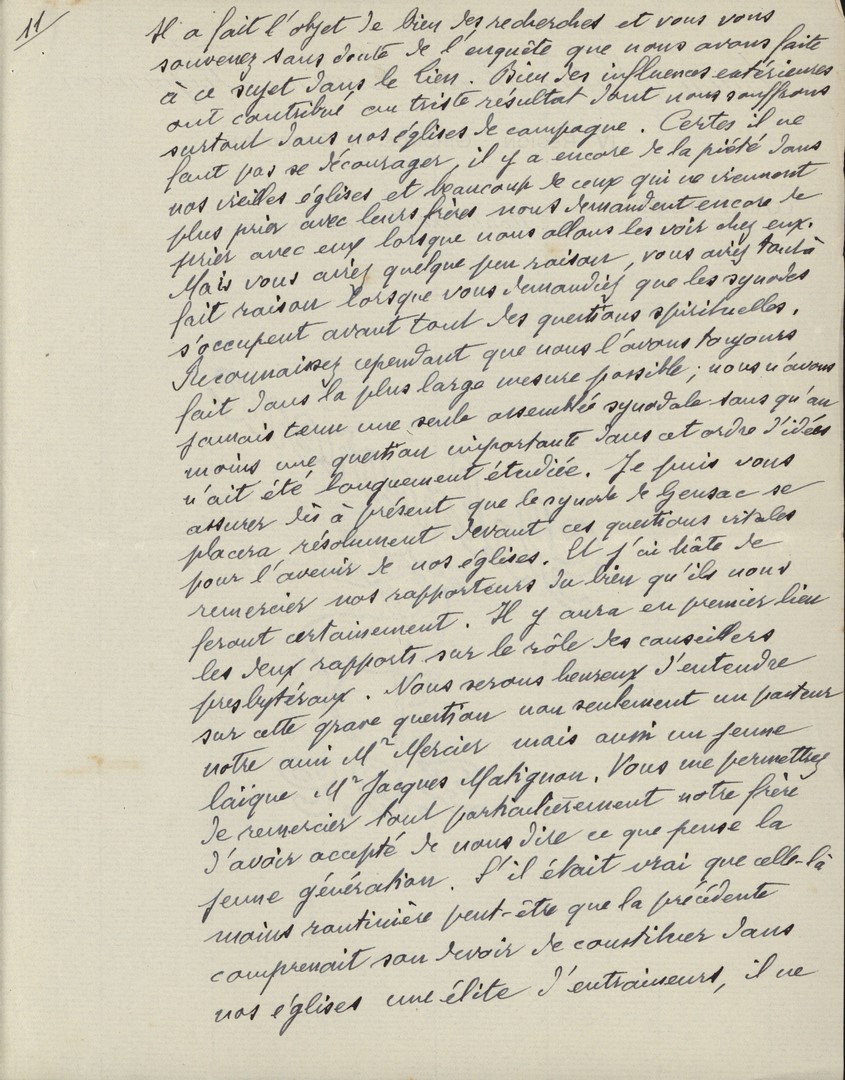 11
Il a fait l'objet de bien des recherches et vous vous
souvenez sans doute de l'enquête que nous avons faite
à ce sujet dans le lien. Bien des influences extérieures
ont contribué au triste résultat dont nous souffrons
surtout dans nos églises de campagne. Certes il ne
faut pas se décourager, il y a encore de la piété dans
nos vieilles églises et beaucoup de ceux qui ne viennent
plus prier avec leurs frères nous demandent encore de
prier avec eux lorsque nous allons les voir chez eux.
Mais vous aviez quelque peu raison, vous aviez tout à
fait raison lorsque vous demandiez que les synodes
s'occupent avant tout des questions spirituelles.
Reconnaissez cependant que nous l'avons toujours
fait dans la plus large mesure possible ; nous n'avons
jamais tenu une seule assemblée synodale sans qu'au
moins une question importante dans cet ordre d'idées
n'ait été longuement étudiée. Je puis vous
assurer dès à présent que le synode de Gensac se
placera résolument devant ces questions vitales
pour l'avenir de nos églises. Et j'ai hâte de
remercier nos rapporteurs du bien qu'ils nous
feront certainement. Il y aura en premier lieu
les deux rapports sur le rôle des conseillers
presbytéraux. Nous serons heureux d'entendre
sur cette grave question non seulement un pasteur
notre ami Mr Mercier mais aussi un jeune
laïque Mr Jacques Matignon. Vous me permettrez
de remercier tout particulièrement notre frère
d'avoir accepté de nous dire ce que pense la
jeune génération. S'il était vrai que celle-là
moins routinière peut-être que la précédente
comprenait son devoir de constituer dans
nos églises une élite d'entraineurs, il ne